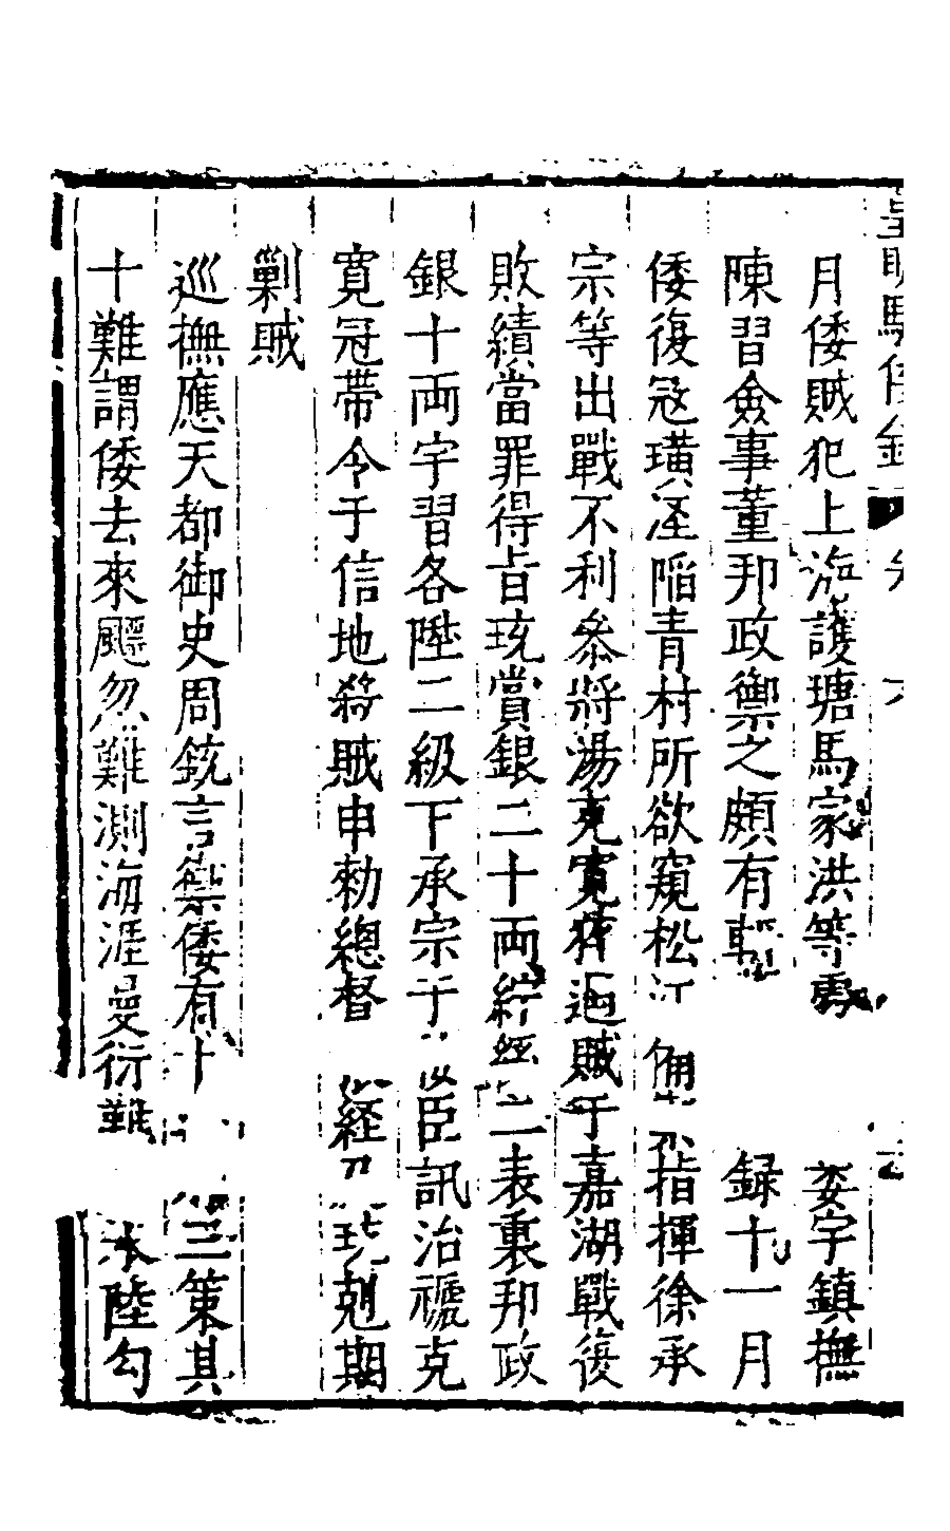 月倭賊犯上海護塘馬家洪等處 婁宇鎮撫
陳習僉事董邦政禦之頗有斬 録十一月
倭復寇璜涇陷青村所欲窺松江 備 指揮徐承
宗等出戰不利叅將湯克寬 迤賊于嘉湖戰復
敗績當罪得㫖珫賞銀二十兩綜 二表裏邦政
銀十兩宇習各陞二級下承宗于 臣訊治禠克
寬冠帶令于信地殺賊申勑總督 経 珫剋期
剿賊
巡撫應天都御史周珫言禦倭有十 三策其
十難謂倭去來飄忽難測海涯曼衍難 水陸勾